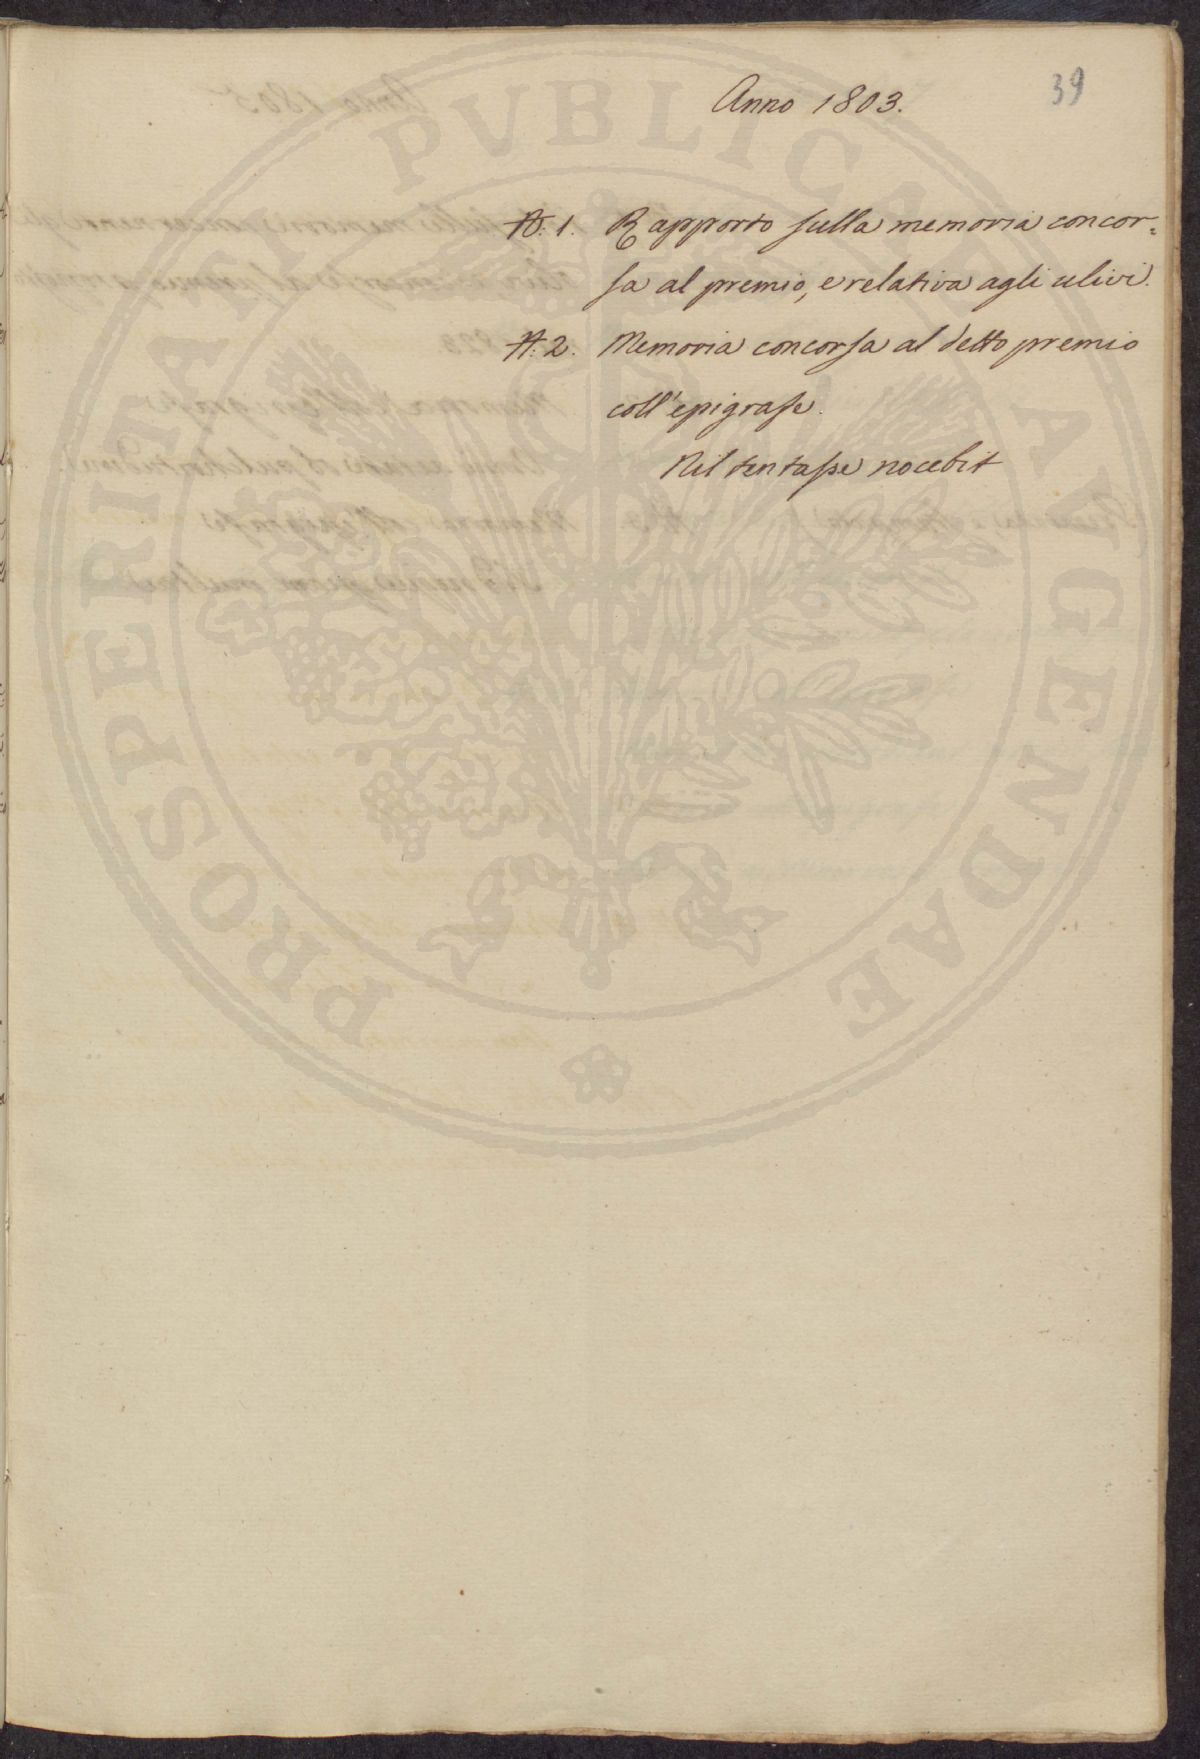 39
Anno 1803.
N. 1. Rapporto sulla memoria concor=
sa al premio, e relativa agli ulivi.
N. 2. Memoria concorsa al detto premio
coll'epigrafe.
Nil tentasse nocebit
PROSPERITATI PUBLICAE AVGENDAE